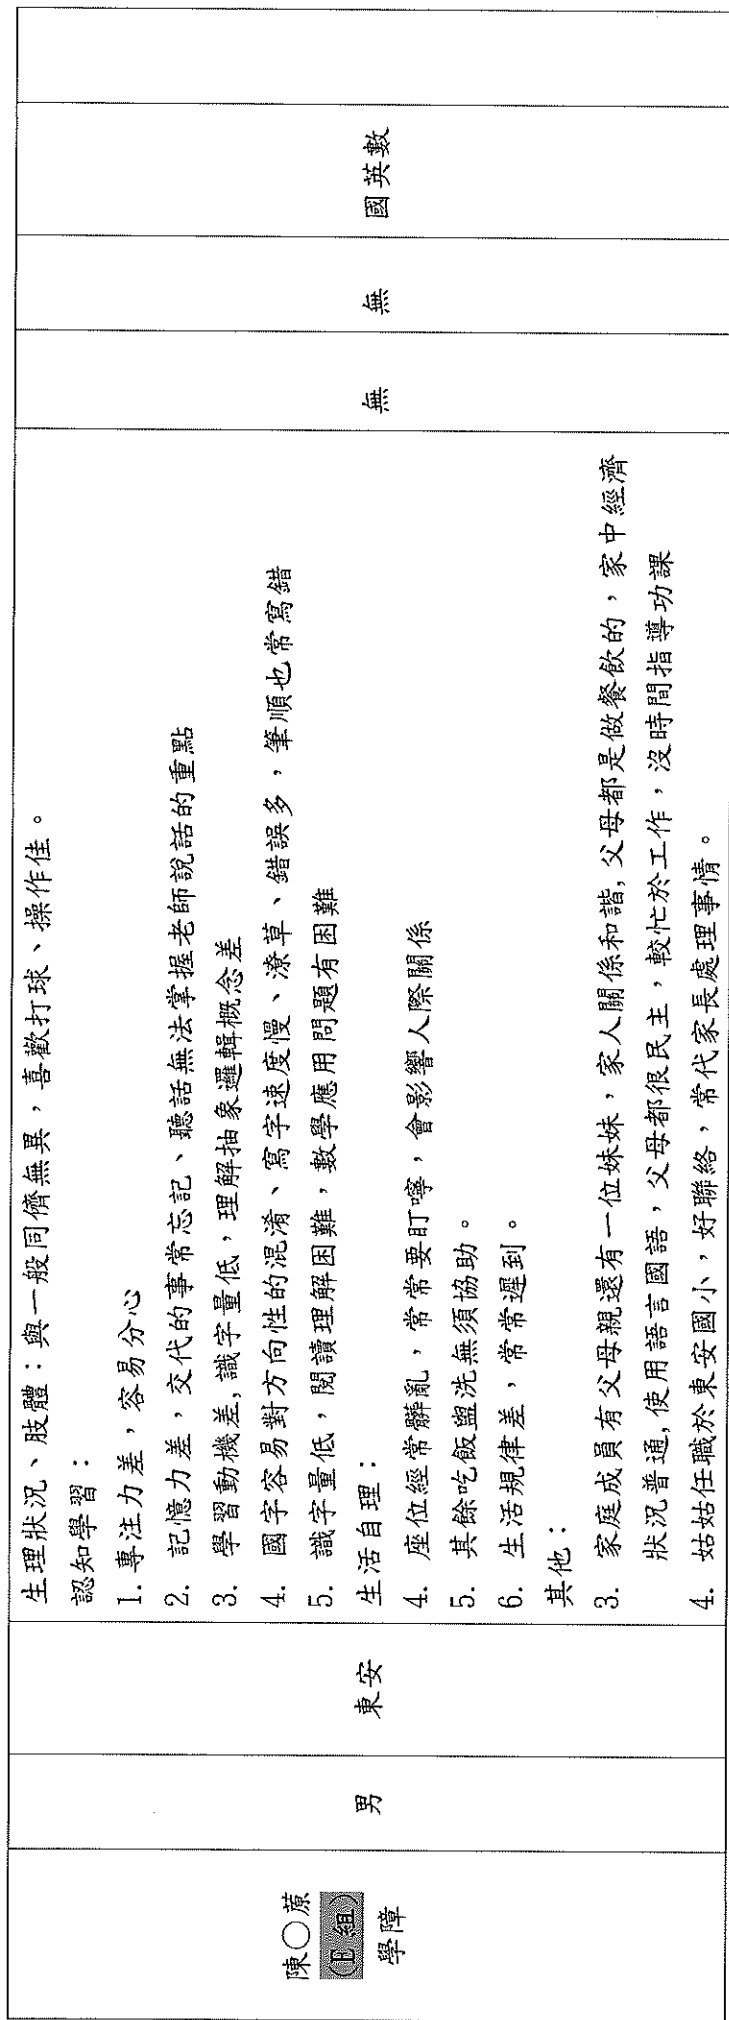 陳○蒝
(E 組)
學障
男
東安
生理狀況、肢體：與一般同儕無異，喜歡打球、操作佳。
認知學習：
1. 專注力差，容易分心
2. 記憶力差，交代的事常忘記、聽話無法掌握老師說話的重點
3. 學習動機差,識字量低，理解抽象邏輯概念差
4. 國字容易對方向性的混淆、寫字速度慢、潦草、錯誤多，筆順也常寫錯
5. 識字量低，閱讀理解困難，數學應用問題有困難
生活自理：
4. 座位經常髒亂，常常要叮嚀，會影響人際關係
5. 其餘吃飯盥洗無須協助。
6. 生活規律差，常常遲到。
其他：
3. 家庭成員有父母親還有一位妹妹，家人關係和諧,父母都是做餐飲的，家中經濟
狀況普通,使用語言國語，父母都很民主，較忙於工作，沒時間指導功課
4. 姑姑任職於東安國小，好聯絡，常代家長處理事情。
無
無
國英數